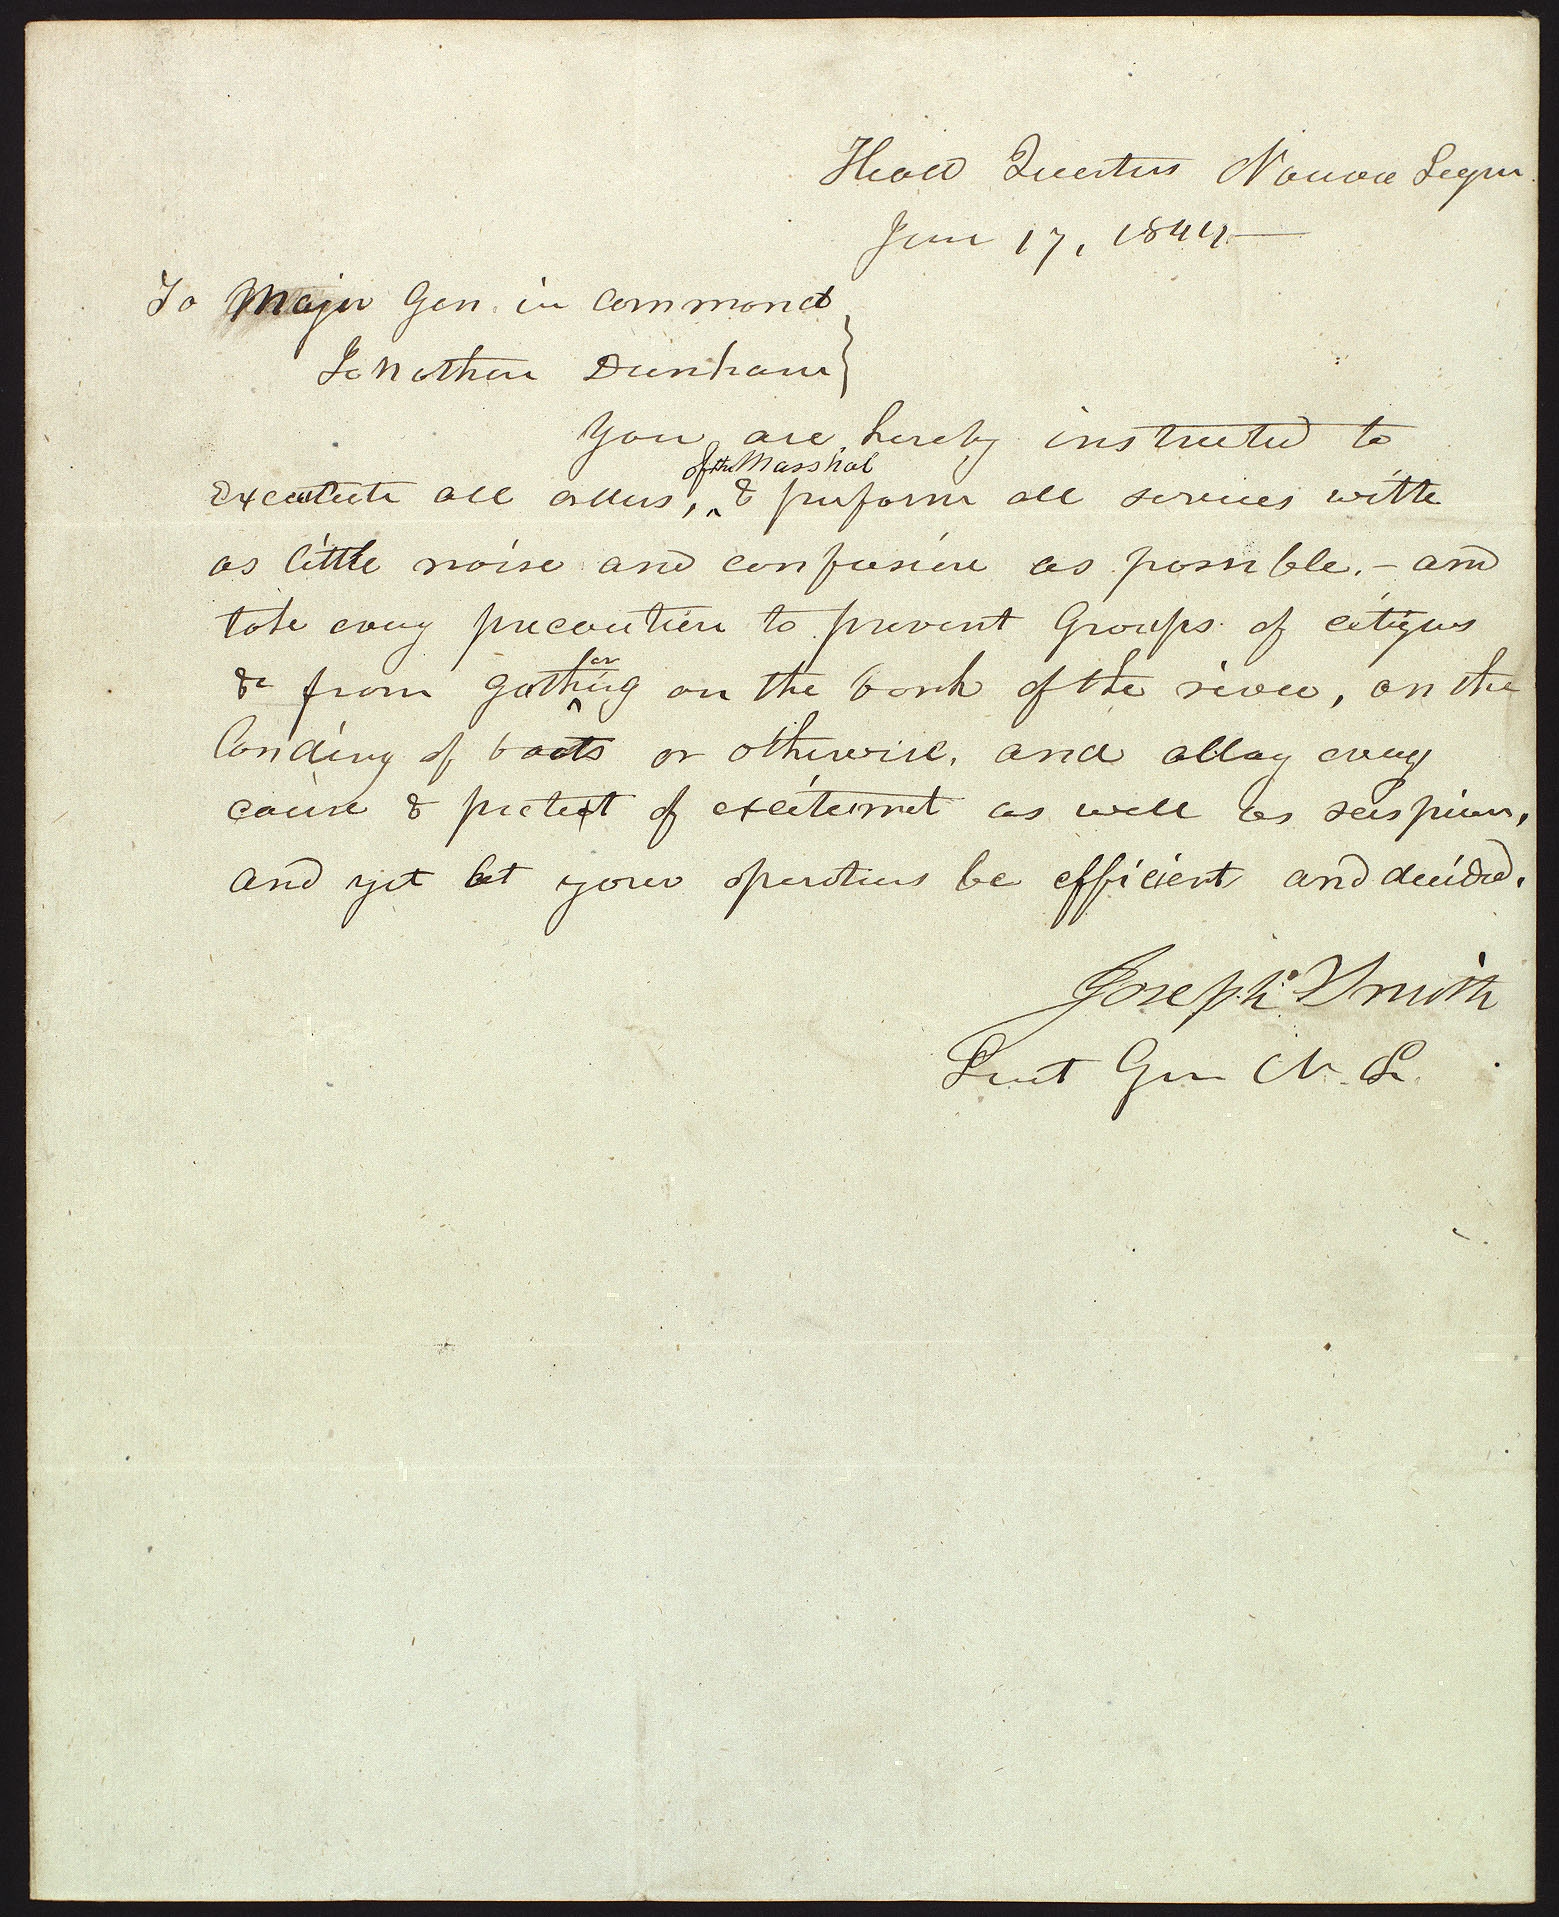 Head Quarters Nauvoo Legion
June 17, 1844—
To Major Gen. in command
Jonathan Dunham }
You are hereby instructed to
of the Marshal
Execute all orders, ^ & perform all services with
as little noise and confusion as possible. – and
take every precaution to prevent Groups of citizens
er
&c from gathing on the bank of the river, on the
landing of boats or otherwise, and allay every
cause & pretext of excitement as well as suspicion,
and yet let your operations be efficient and decided.
Joseph Smith
Lieut Gen N. L.